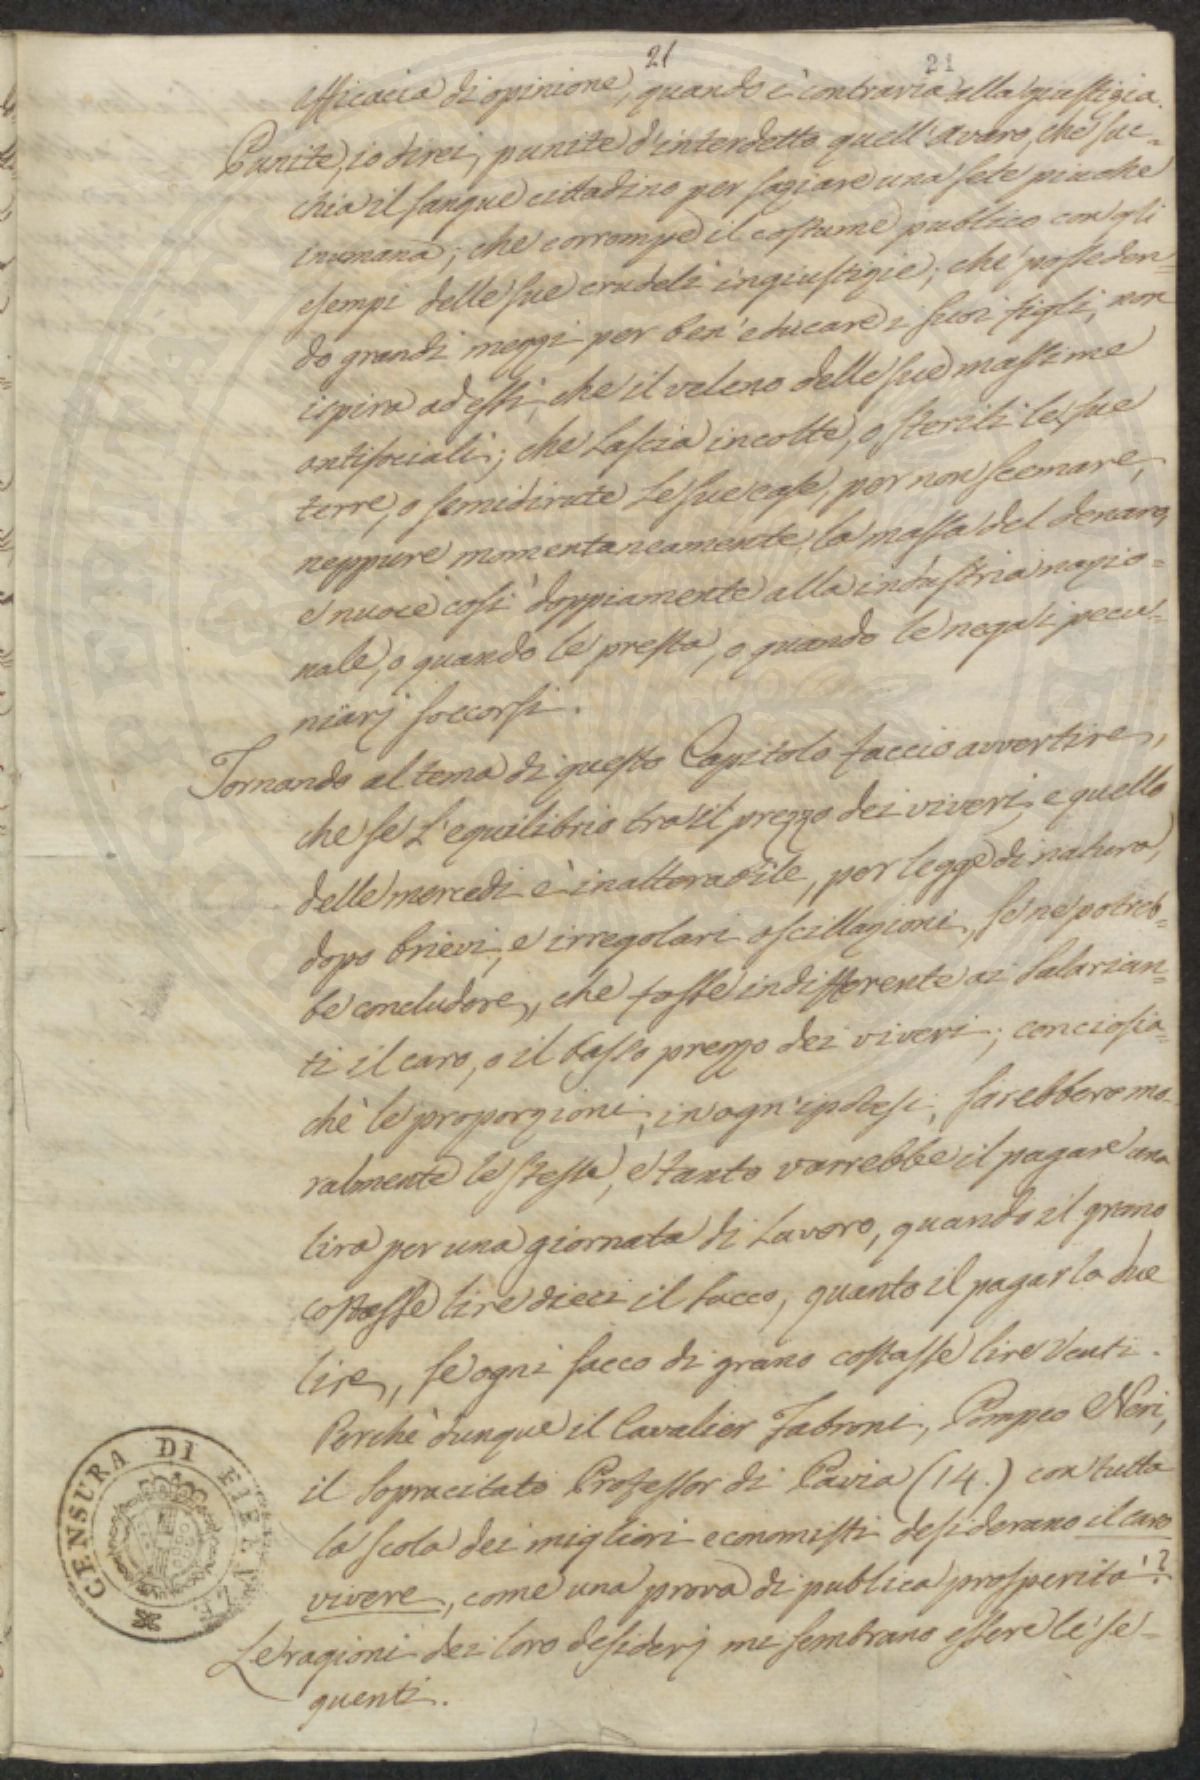 21
21
efficacia di opinione, quando è contraria alla giustizia.
Punite, io direi, punite d'interdetto quell'avaro, che suc=
chia il sangue cittadino per saziare una sete più che
inumana; che corrompe il costume publico con gli
esempi delle sue crudeli ingiustizie; che posseden=
do grandi mezzi per ben'educare i suoi figli, non
ispira ad essi, che il veleno delle sue massime
antisociali; che lascia incolte, o sterili le sue
terre, o semidirute le sue case, per non scemare,
neppure momentaneamente, la massa del denaro,
e nuoce così doppiamente alla industria nazio=
nale, o quando le presta, o quando le nega i pecu=
niarj soccorsi.
Tornando al tema di questo Capitolo faccio avvertire,
che se l'equilibrio tra il prezzo dei viveri, e quello
delle mercedi è inalterabile, per legge di natura,
dopo brievi, e irregolari oscillazioni, se ne potreb=
be concludere, che fosse indifferente ai salarian=
ti il caro, o il basso prezzo dei viveri; conciosia=
chè le proporzioni, in ogn'ipotesi, sarebbero mo=
ralmente le stesse, e tanto varrebbe il pagare una
lira per una giornata di lavoro, quando il grano
costasse lire dieci il sacco, quanto il pagarla due
lire, se ogni sacco di grano costasse lire venti.
Perchè dunque il Cavalier Fabroni, Pompeo Neri,
il sopracitato Professor di Pavia (14.) con tutta
la scola dei migliori economisti desiderano il caro
vivere, come una prova di publica prosperità?
Le ragioni dei loro desiderj mi sembrano essere le se=
guenti.
CENSURA DI FIRENZE